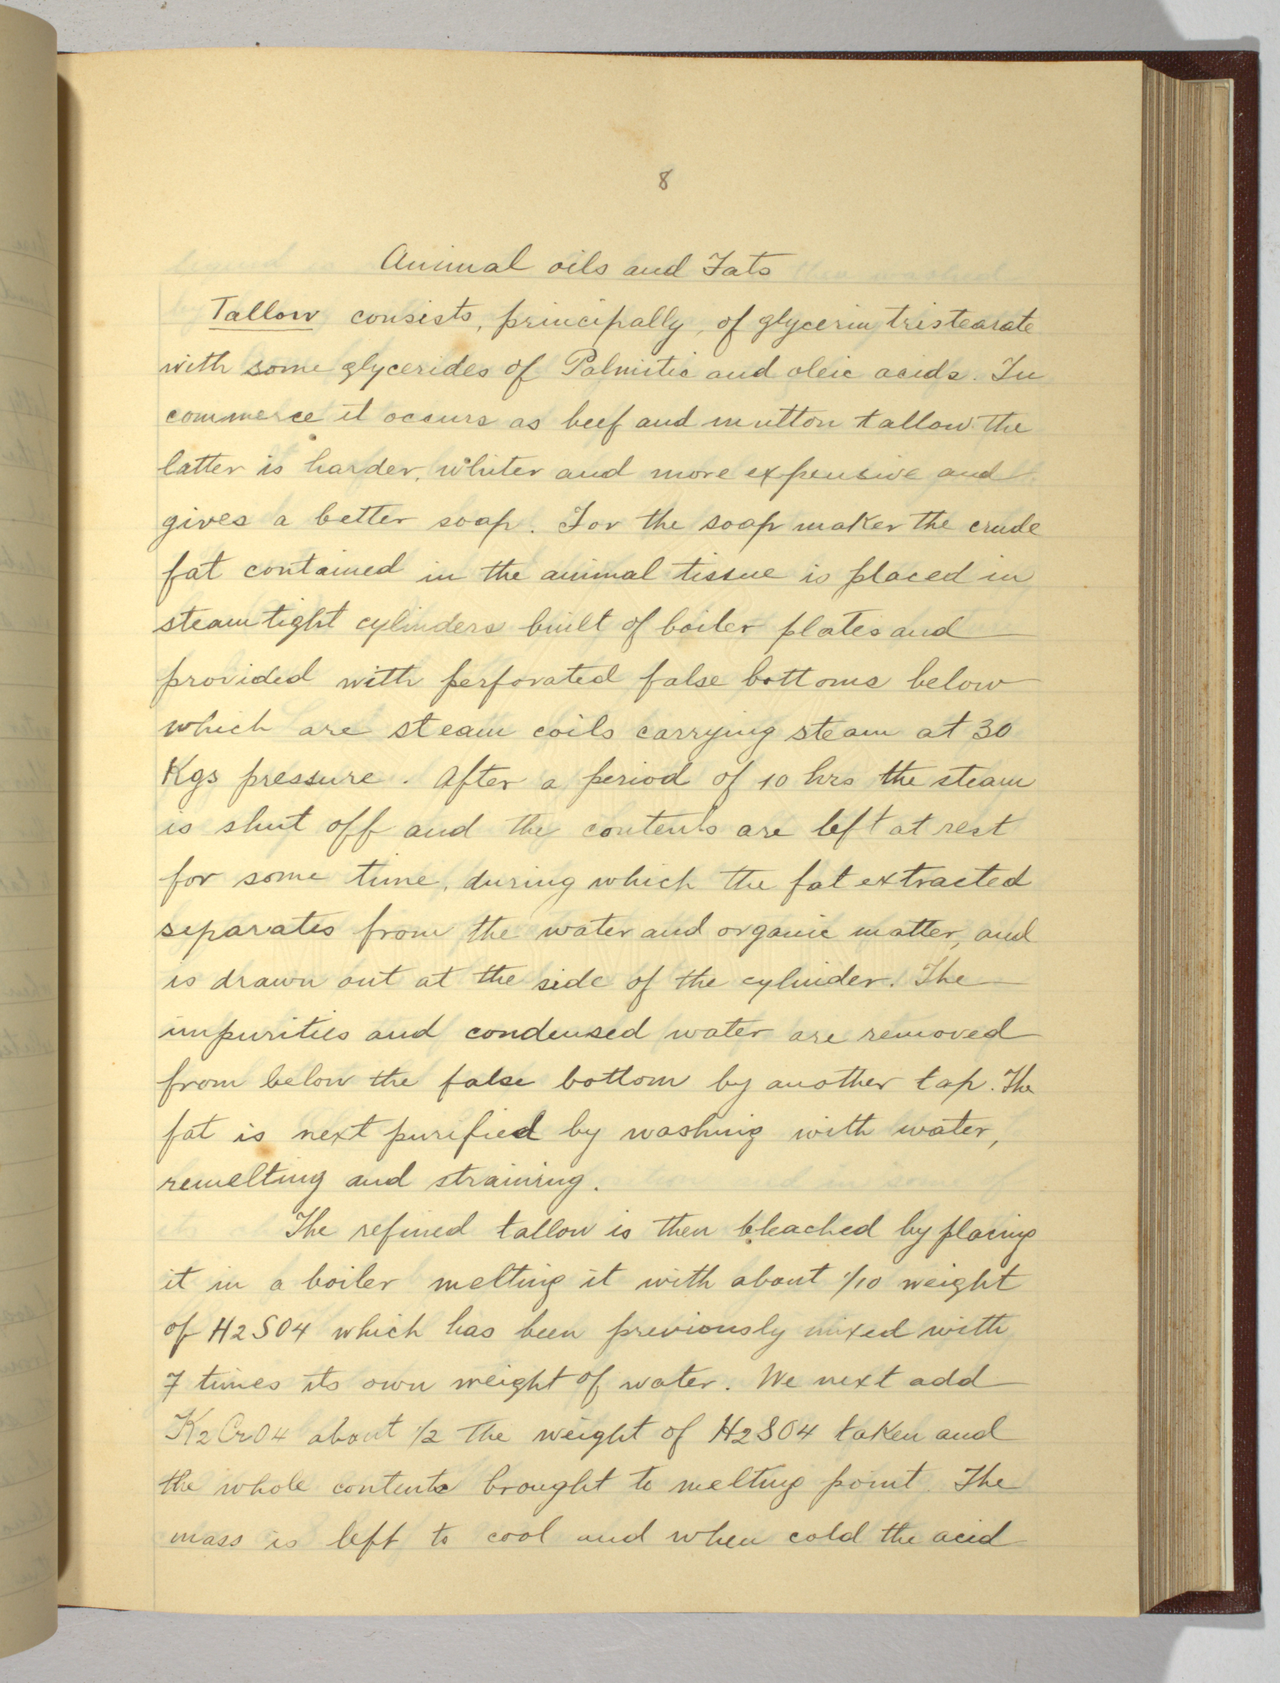 8
Animal oils and Fats
Tallow consists, principally, of glycerin tristearate
with some glycerides of Palmitic and oleic acids. In
commerce it occurs as beef and mutton tallow the
latter is harder, whiter and more expensive and
gives a better soap. For the soap maker the crude
fat contained in the animal tissue is placed in
steam tight cylinders built of boiler plates and
provided with perforated false bottoms below
which are steam coils carrying steam at 30
Kgs pressure. After a period of 10 hrs the steam
is shut off and the contents are left at rest
for some time, during which the fat extracted
separates from the water and organic matter, and
is drawn out at the side of the cylinder. The
impurities and condensed water are removed
from below the false bottom by another tap. The
fat is next purified by washing with water,
remelting and straining.
The refined tallow is then bleached by placing
it in a boiler melting it with about 1/10 weight
of H2SO4 which has been previously mixed with
7 times its own weight of water. We next add
K2CrO4 about 1/2 the weight of H2SO4 taken and
the whole contents brought to melting point. The
mass is left to cool and when cold the acid